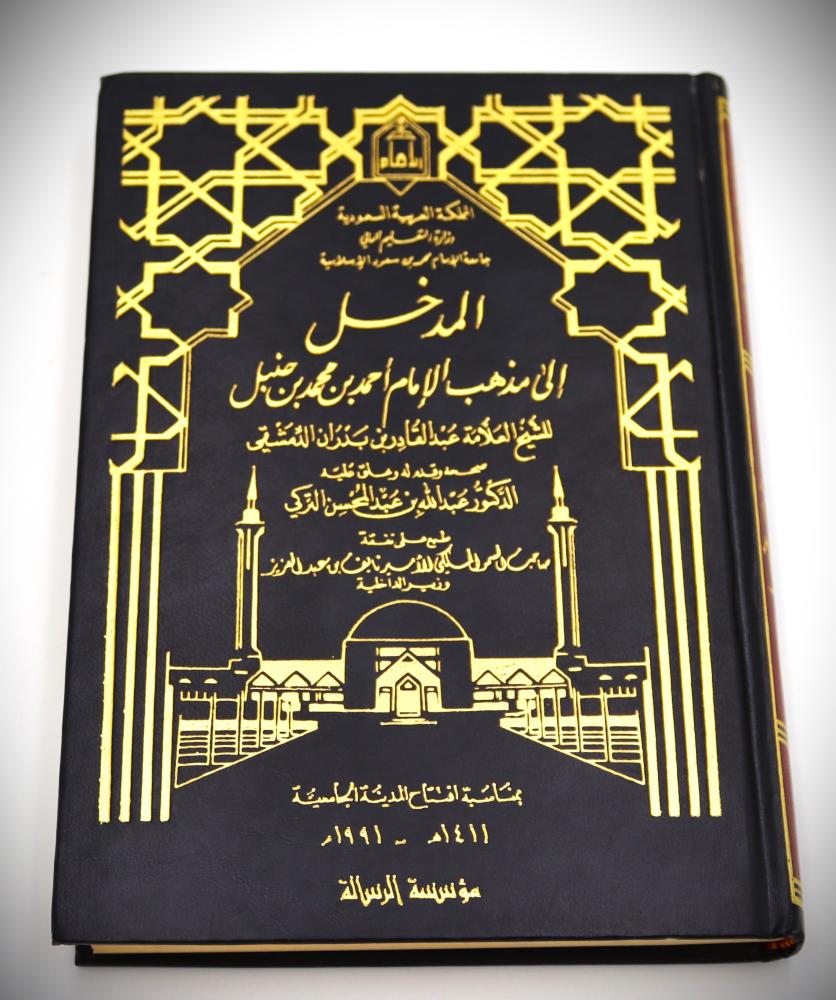 المملكة العربية السعودية
وزارة التعليم العالي
جامعة الإمام محمد بن سعود الإسلامية
المدخل
إلى مذهب الإمام أحمد بن محمد بن حنبل
للشيخ العلامة عبد القادر بن بدران الدمشقي
صححه وقدم له وعلق عليه
الدكتور عبد الله بن عبد المحسن التركي
طبع على نفقة
صاحب السمو الملكي الأمير نايف بن عبد العزيز
وزير الداخلية
بمناسبة افتتاح المدينة الجامعية
١٤١١هـ - ١٩٩١م
مؤسسة الرسالة